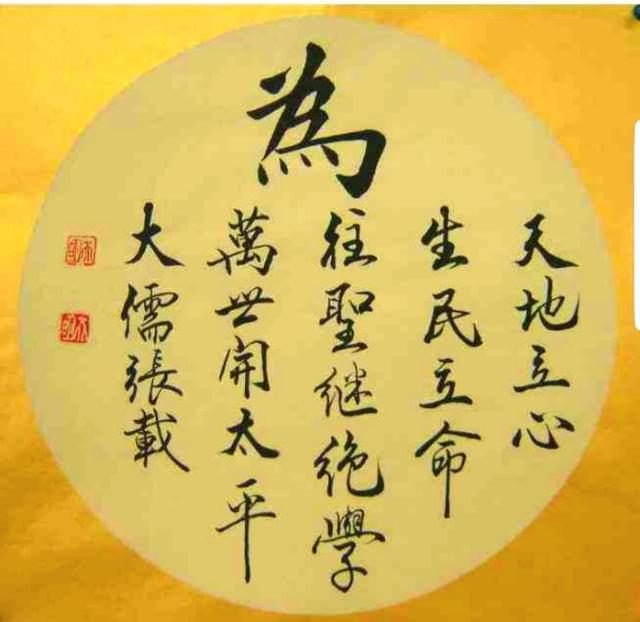 為
天地立心
生民立命
往聖継絶學
萬世開太平
大儒張載